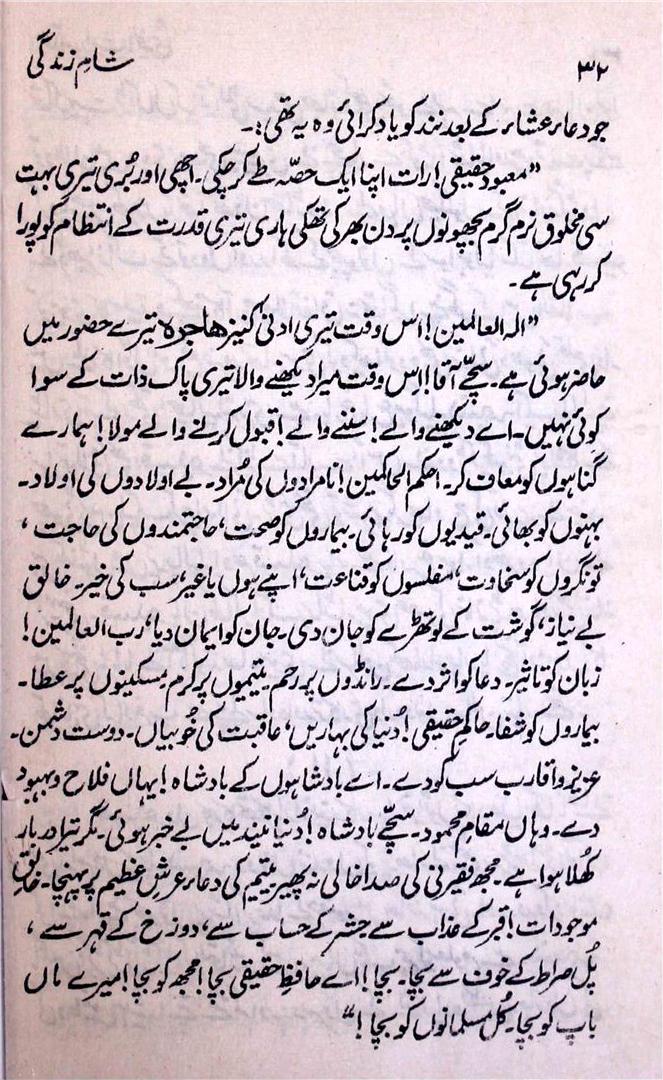 ۳۲
شامِ زندگی
جو دعاء عشاء کے بعد نند کو یاد کرائی وہ یہ تھی:۔
”معبودِ حقیقی! رات اپنا ایک حصّہ طے کر چکی۔ اچھی اور بُری تیری بہت
سی مخلوق نرم گرم بچھونوں پر دن بھر کی تھکی ہاری تیری قدرت کے انتظام کو پورا
کر رہی ہے۔
”الہ العالمین! اس وقت تیری ادنیٰ کنیز ھاجرہ تیرے حضور میں
حاضر ہوئی ہے۔ سچّے آقا! اِس وقت میرا دیکھنے والا تیری پاک ذات کے سوا
کوئی نہیں۔ اے دیکھنے والے! سننے والے! قبول کرنے والے مولا! ہمارے
گناہوں کو معاف کر۔ احکم الحاکمین! نامرادوں کی مُراد۔ بے اولادوں کی اولاد۔
بہنوں کو بھائی۔ قیدیوں کو رہائی۔ بیماروں کو صحت، حاجتمندوں کی حاجت،
تونگروں کو سخاوت، مفلسوں کو قناعت، اپنے ہوں یا غیر سب کی خیر۔ خالق
بے نیاز، گوشت کے لوتھڑے کو جان دی۔ جان کو ایمان دیا، رب العالمین!
زبان کو تاثیر۔ دعا کو اثر دے۔ رانڈوں پر رحم۔ یتیموں پر کرم۔ مسکینوں پر عطا۔
بیماروں کو شفا۔ حاکمِ حقیقی! دُنیا کی بہاریں، عاقبت کی خُوبیاں۔ دوست دشمن۔
عزیز و اقارب سب کو دے۔ اے بادشاہوں کے بادشاہ! یہاں فلاح و بہبود
دے۔ وہاں مقامِ محمود۔ سچّے بادشاہ! دُنیا نیند میں بے خبر ہوئی۔ مگر تیرا دربار
کھُلا ہوا ہے۔ مجھ فقیرنی کی صدا خالی نہ پھیر۔ یتیم کی دعاء عرشِ عظیم پر پہنچا۔ خالق
موجودات! قبر کے عذاب سے حشر کے حساب سے، دوزخ کے قہر سے،
پُل صراط کے خوف سے بچا۔ بچا!! اے حافظِ حقیقی بچا! مجھ کو بچا! میرے ماں
باپ کو بچا۔ کُل مسلمانوں کو بچا!“